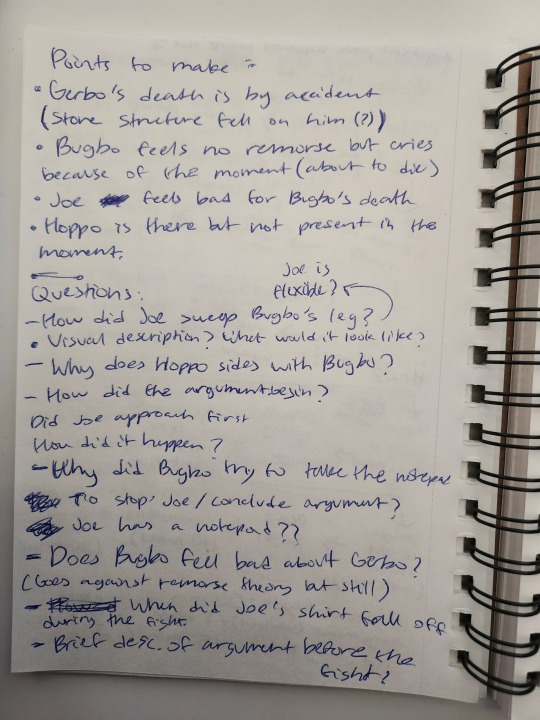 Points to make :-
• Gerbo's death is by accident
(Stone structure fell on him (?))
• Bugbo feels no remorse but cries
because of the moment (about to die)
• Joe feels bad for Bugbo's death
• Hoppo is there but not present in the
moment.
Joe is
flexible?
Questions:
- How did Joe sweep Bugbo's leg?
• Visual description? What would it look like?
- Why does Hoppo sides with Bugbo?
- How did the argument begin?
Did Joe approach first
How did it happen?
- Why did Bugbo try to take the notepad
To stop Joe / conclude argument?
Joe has a notepad??
- Does Bugbo feel bad about Gerbo?
(Goes against remorse theory but still)
- When did Joe's shirt fall off
during the fight
- Brief desc. of argument before the
fight?